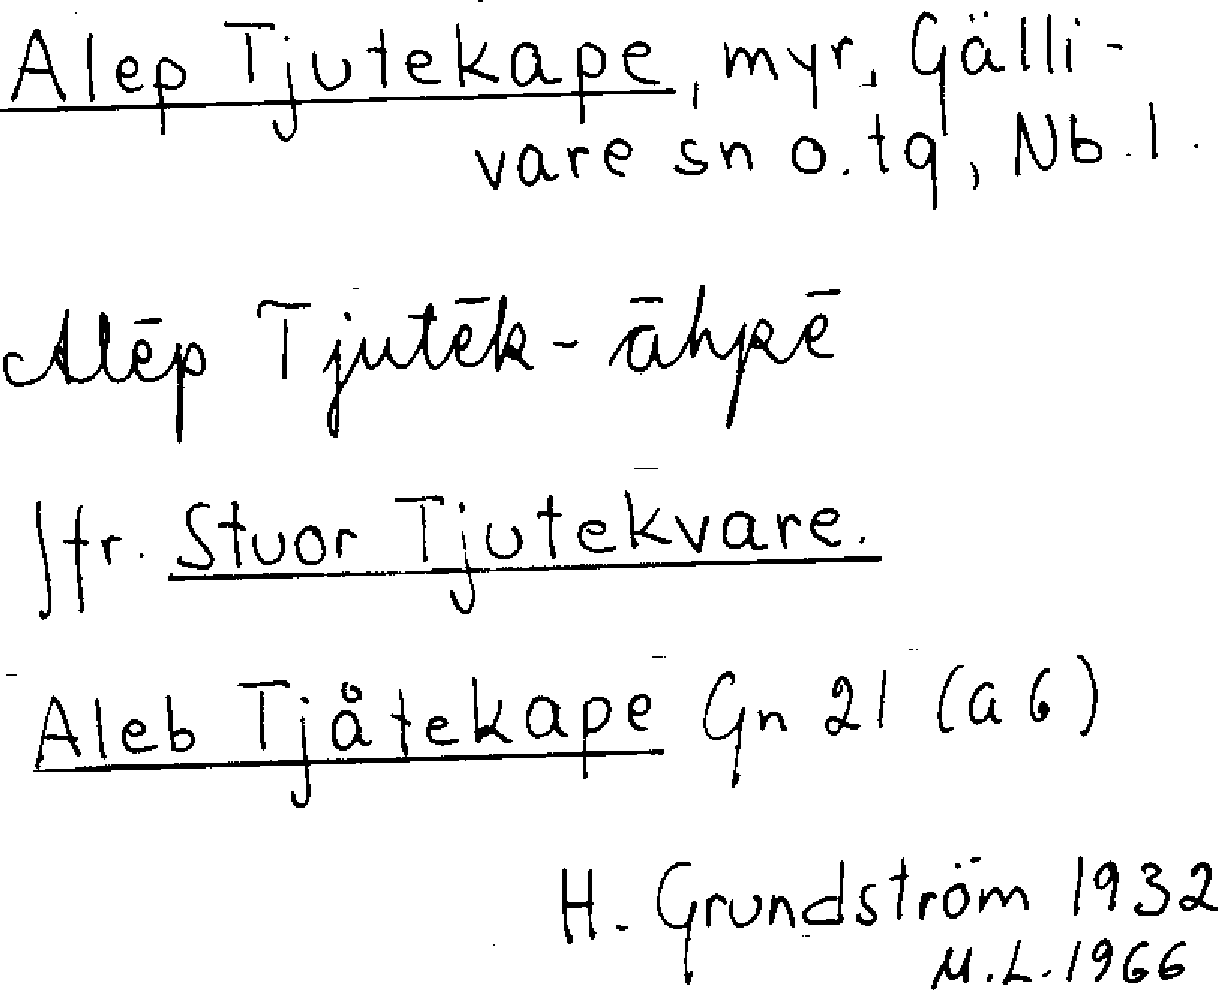 Alep Tjutekape, myr, Gälli-
vare sn o. tg, Nb. l.
Alēp Tjutēk-āhpē
Jfr. Stuor Tjutekvare.
Aleb Tjåtekape Gn 21 (a 6)
H. Grundström 1932
M.L. 1966